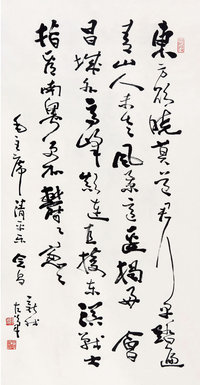 東方欲曉莫道君行早踏遍
青山人未老風景這邊獨好會
昌城外高峰顛連直接东溟戰士
指看南粵更加鬱々葱々
毛主席清平乐会昌